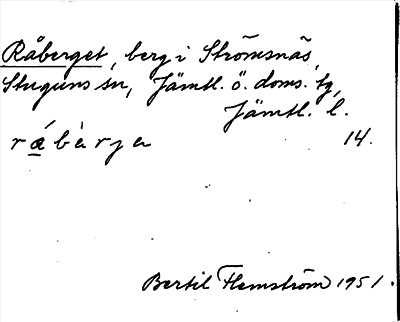 Råberget, berg i Strömsnäs,
Stuguns sn, Jämtl. ö. doms. tg,
Jämtl. l.
rǽbàrja 14.
Bertil Flemström 1951.